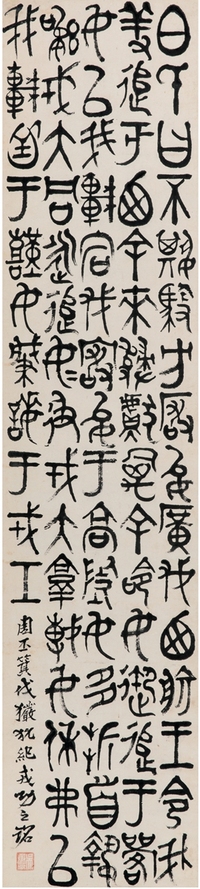 白氏曰不𡢁馭方厰允廣伐西俞王令我
羞追于西余來歸獻禽余命女御追于洛
女以我車宕伐厰允于高陵女多折首執
訊戎大同從追女彶戎大敦搏女休弗以
我車圅于囏女肇誨于戎工
周丕箕伐玁狁紀戎功之銘